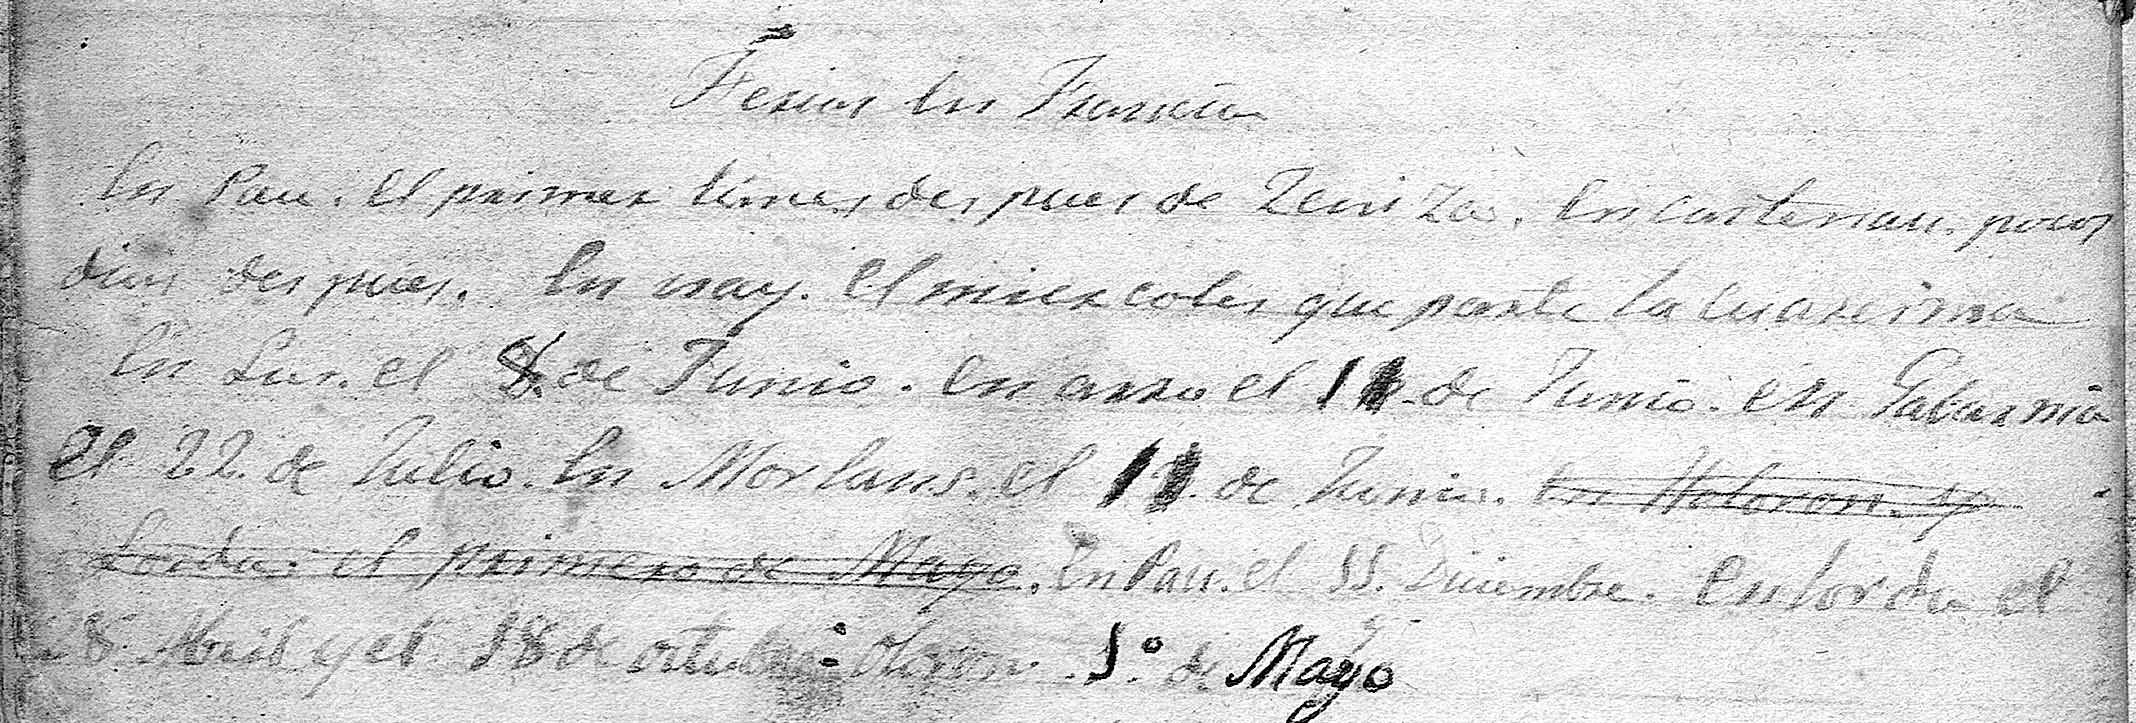 Ferias en Francia
En Pau. el primer lúnes des pues de Zeniza. En castenau. pocos
dias des pues. En nay. el miercoles que parte la cuaresma
En Lus. el 8. de Junio. en arro el de Junio. en Gabarnia
el 22. de Julio. En Morlans. el de Junio. En Holoron. y
Lorda. el primero de Mayo. En Pau. el 11. Diciembre. En lorda el
8. Abril y el 18 de octubre. Oloron. 1º de Mayo